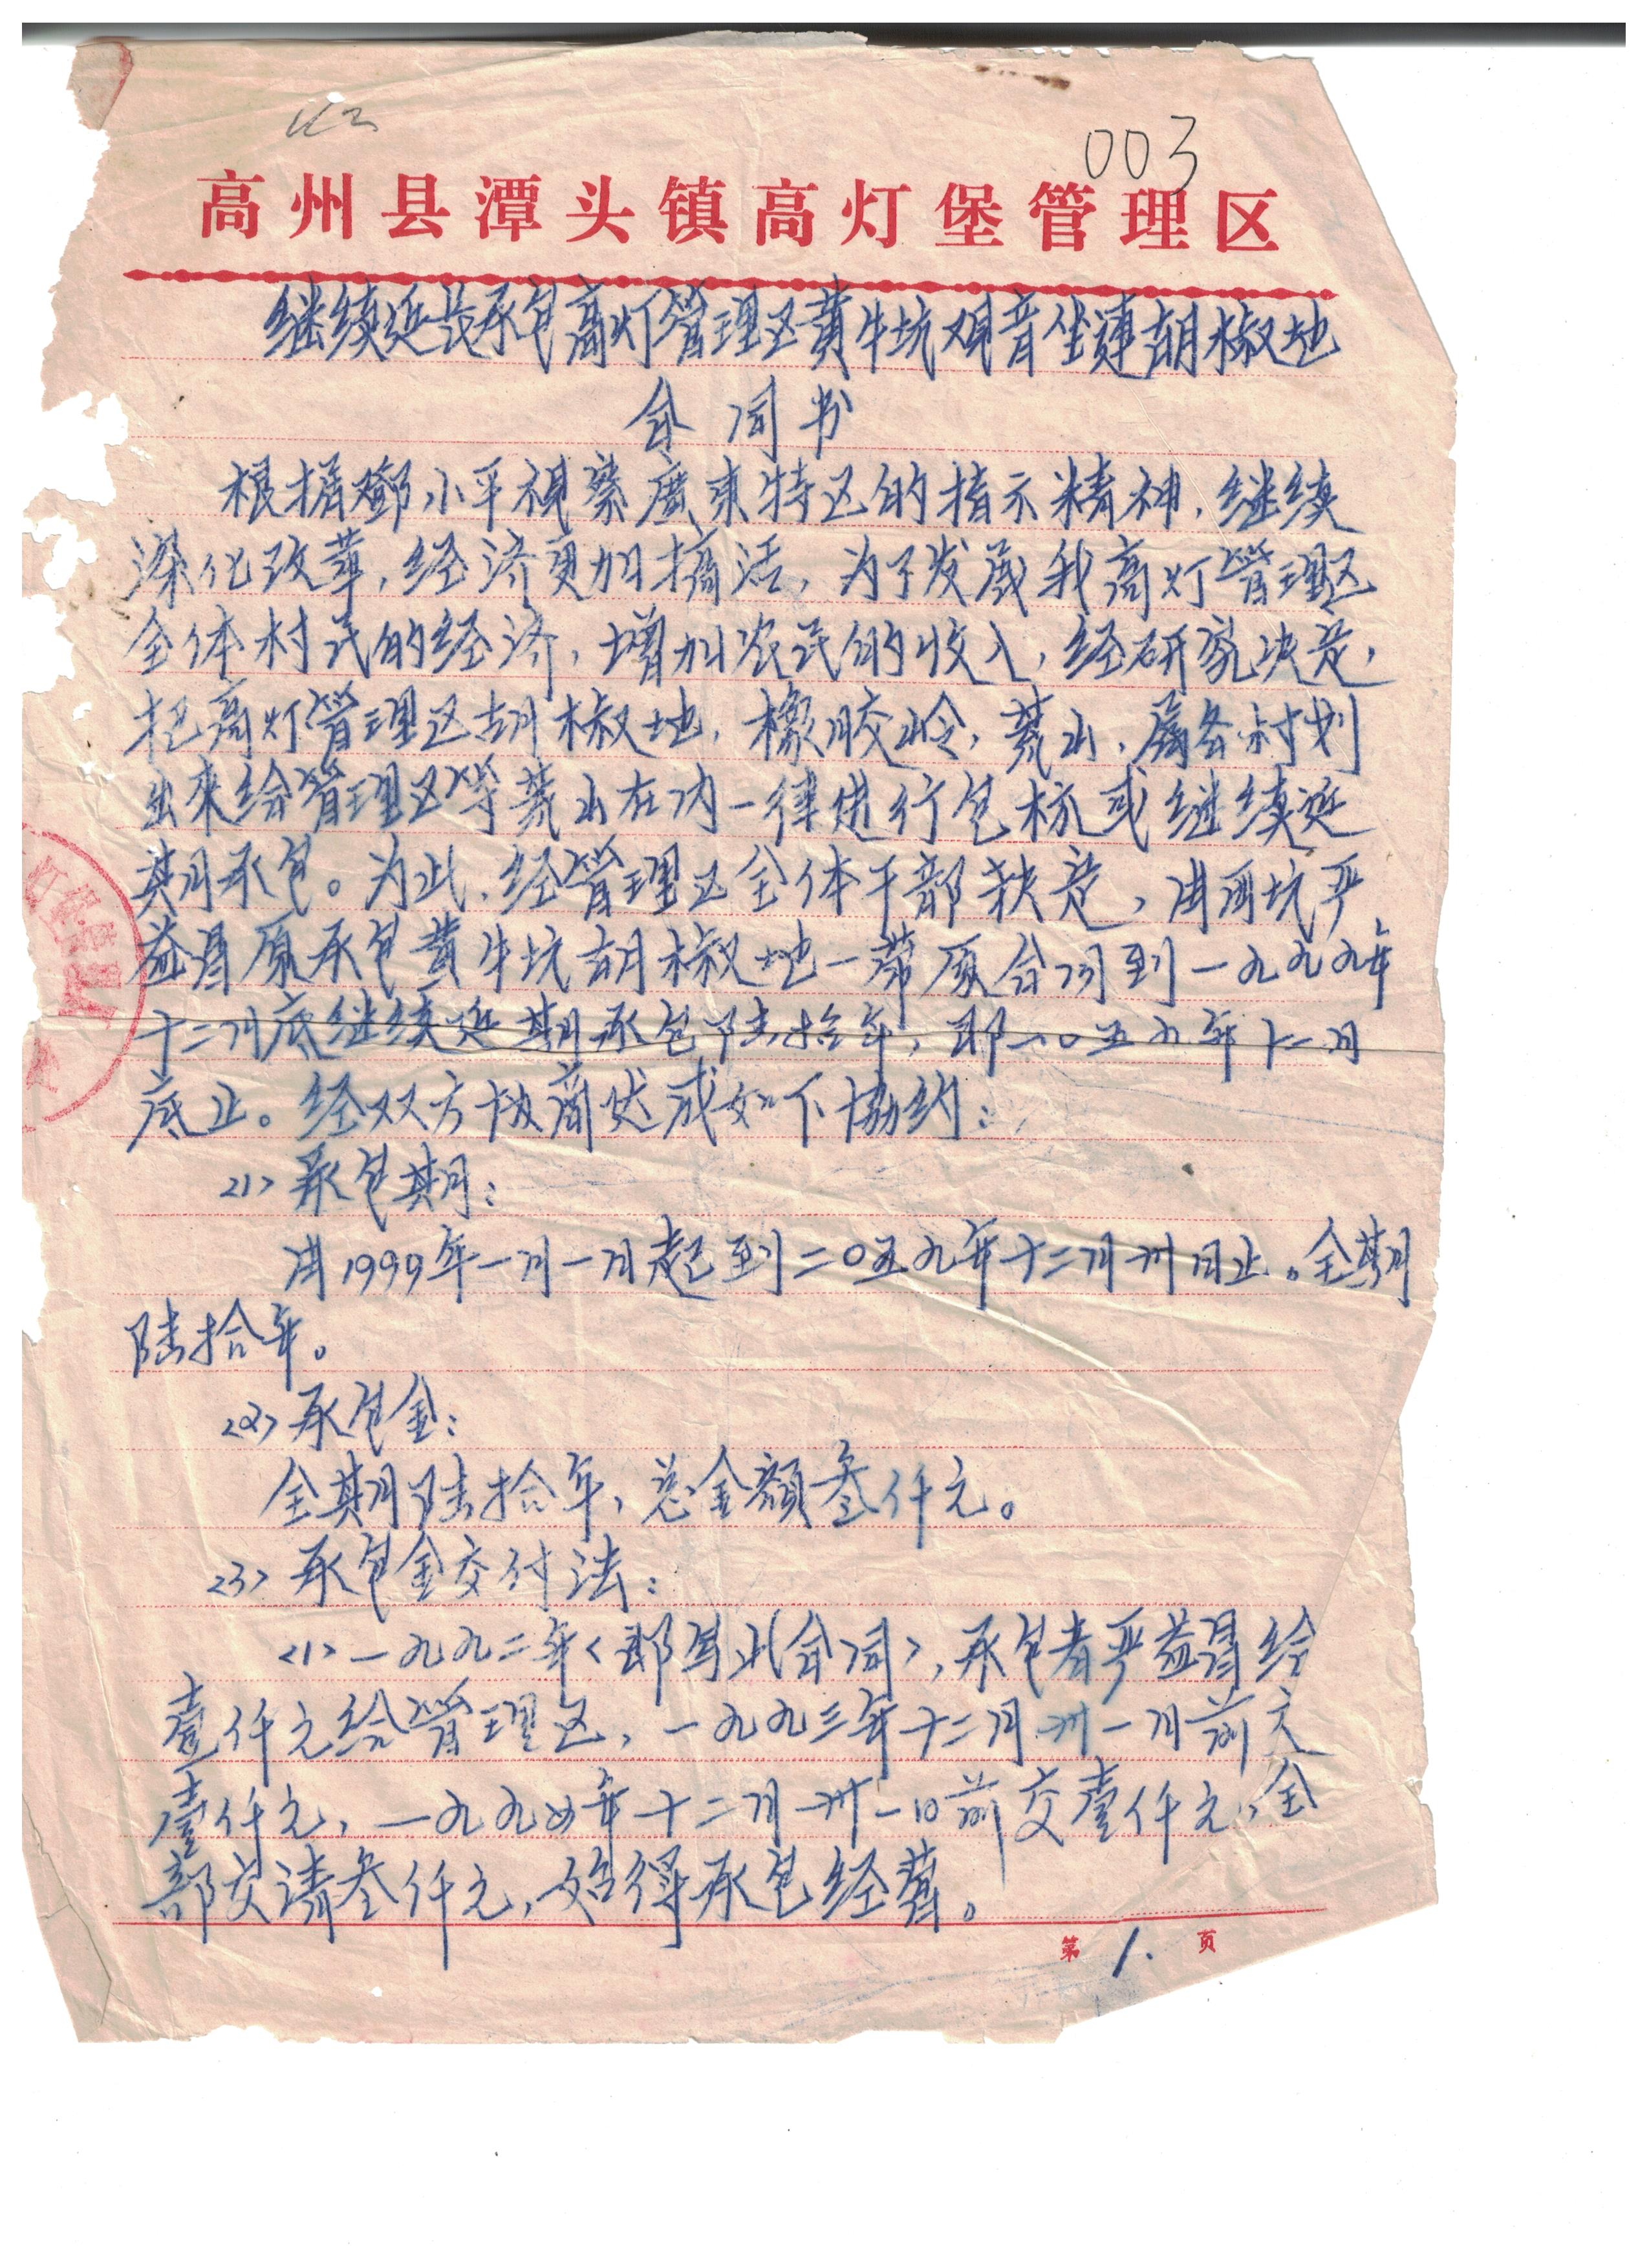 003
高州县潭头镇高灯堡管理区
继续延长承包高灯管理区黄牛坑观音坐莲胡椒地
合同书
根据邓小平视察广东特区的指示精神，继续
深化改革，经济更加搞活，为了发展我高灯管理区
全体村民的经济，增加农民的收入，经研究决定，
把高灯管理区胡椒地，橡胶岭，荒山，属各村划
出来给管理区等荒山在内一律进行包标或继续延
期承包。为此，经管理区全体干部决定，由西坑严
益昌原承包黄牛坑胡椒地一带原合同到一九九九年
十二月底继续延期承包陆拾年，即二〇五九年十二月
底止。经双方协商达成如下协约：
<1> 承包期：
由1999年一月一日起到二〇五九年十二月卅日止。全期
陆拾年。
<2> 承包金：
全期陆拾年，总金额叁仟元。
<3> 承包金交付法：
<1> 一九九二年<即写此合同>，承包者严益昌给
壹仟元给管理区，一九九三年十二月卅一日前交
壹仟元，一九九四年十二月卅一日前交壹仟元，全
部交清叁仟元，始得承包经营。
第 1. 页